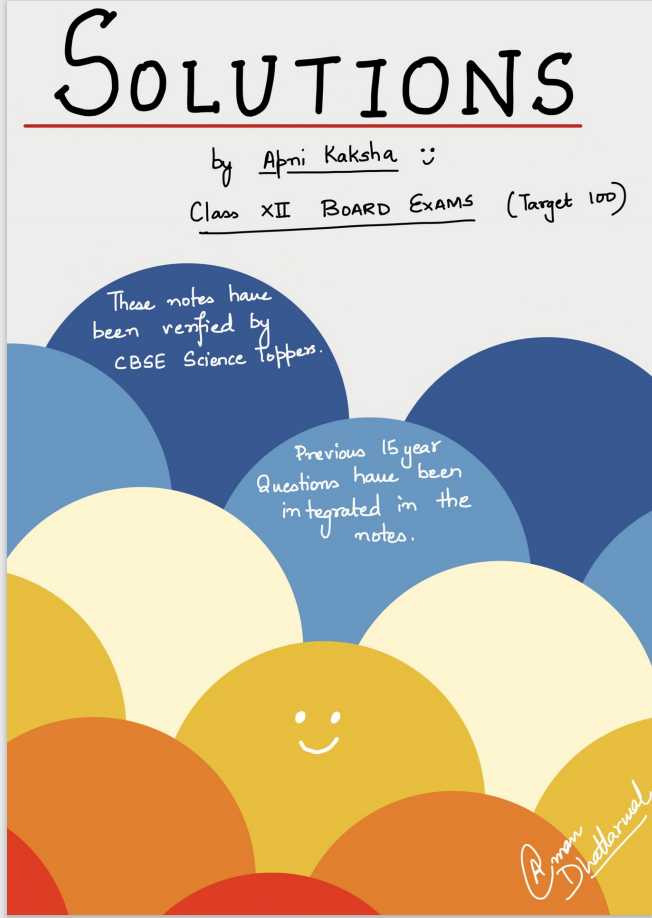 SOLUTIONS
by Apni Kaksha
Class XII BOARD EXAMS (Target 100)
These notes have
been verified by
CBSE Science Toppers.
Previous 15 year
Questions have been
integrated in the
notes.
Aman
Dhattarwal